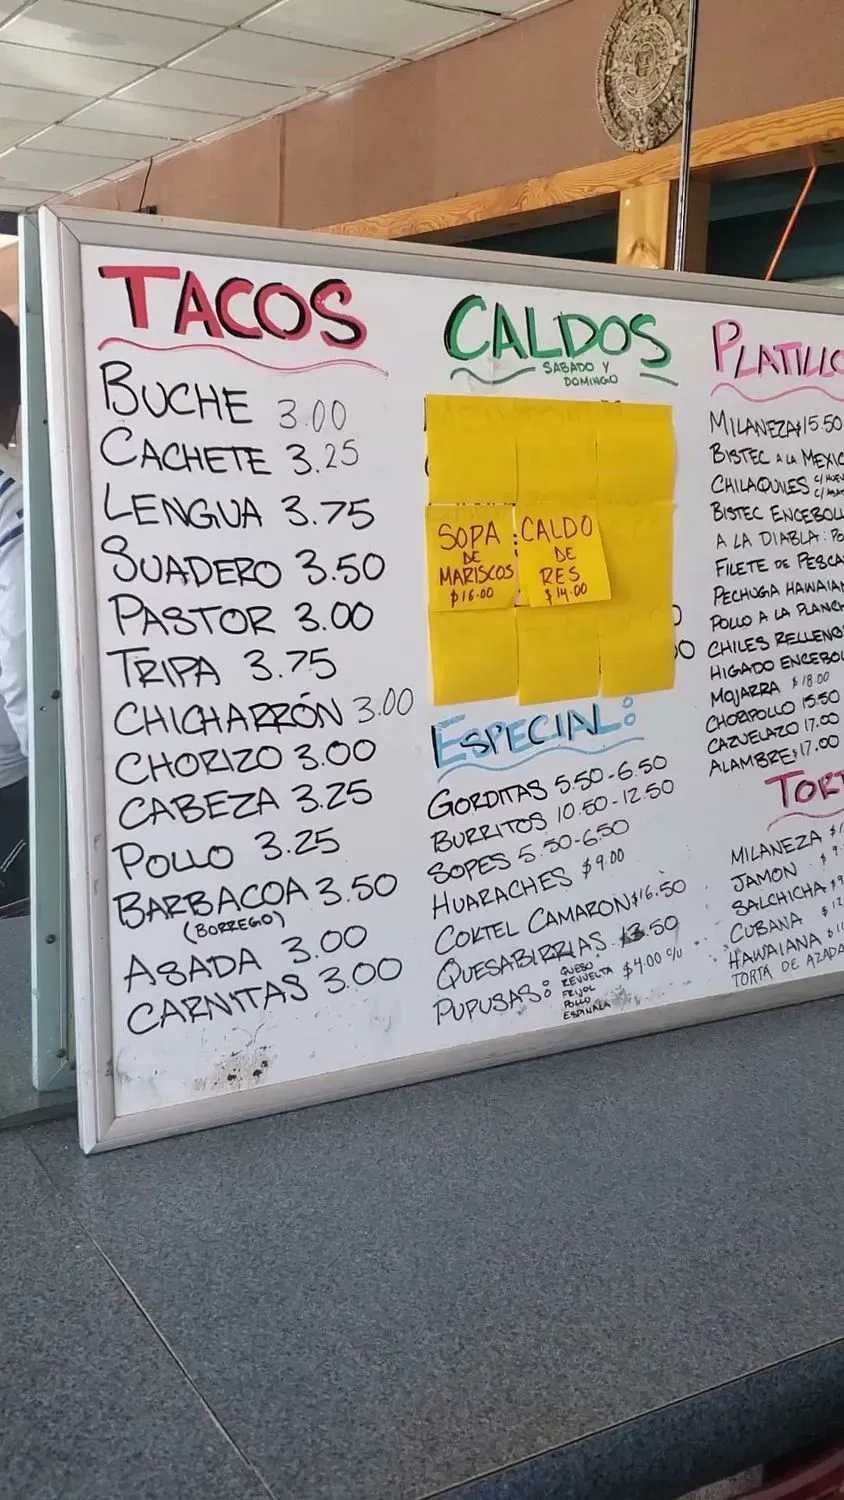 TACOS
BUCHE 3.00
CACHETE 3.25
LENGUA 3.75
SUADERO 3.50
PASTOR 3.00
TRIPA 3.75
CHICHARRÓN 3.00
CHORIZO 3.00
CABEZA 3.25
POLLO 3.25
BARBACOA 3.50
(BORREGO)
ASADA 3.00
CARNITAS 3.00
CALDOS
SABADO Y
DOMINGO
SOPA
DE
MARISCOS
$16.00
CALDO
DE
RES
$14.00
ESPECIAL:
GORDITAS 5.50-6.50
BURRITOS 10.50-12.50
SOPES 5.50-6.50
HUARACHES $9.00
COKTEL CAMARON $16.50
QUESABIRRIAS 3.50
PUPUSAS: $4.00 c/u
QUESO
REVUELTA
FRIJOL
POLLO
ESPINALA
PLATILLO
MILANEZA $15.50
BISTEC A LA MEXIC
CHILAQUILES
BISTEC ENCEBOLL
A LA DIABLA: PO
FILETE DE PESCA
PECHUGA HAWAIAN
POLLO A LA PLANCH
CHILES RELLENO
HIGADO ENCEBOL
MOJARRA $18.00
CHORIPOLLO 15.50
CAZUELAZO 17.00
ALAMBRE $17.00
TORT
MILANEZA
JAMON
SALCHICHA
CUBANA
HAWAIANA
TORTA DE AZADA